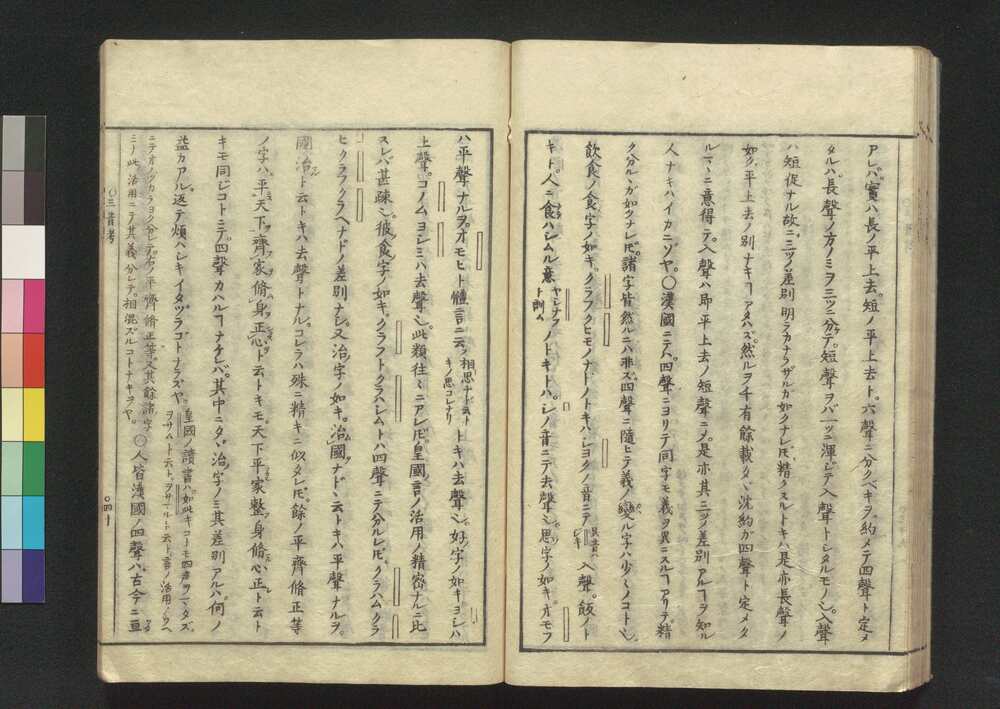 アレバ實ハ長ノ平上去。短ノ平上去ト。六聲ニ分クベキヲ。約メテ四聲ト定メ
タルハ。長聲ノ方ノミヲ三ツニ分テ。短聲ヲバ一ツニ渾ジテ入聲トシタルモノ也。入聲
ハ短促ナル故ニ。三ツノ差別明ラカナラザルガ如クナレ𪜈。精クスルトキハ是亦長聲ノ
如ク。平上去ノ別ナキヿアタハズ。然ルヲ千有餘載。タヾ沈約ガ四聲ト定メタ
ルマヽニ意得テ。入聲ハ即平上去ノ短聲ニ〆。是亦其三ツノ差別アルヿヲ知ル
人ナキハイカニゾヤ。〇漢國ニテハ。四聲ニヨリテ同字モ義ヲ異ニスルヿアリテ。精
ク分ルヽガ如クナレ𪜈。諸字皆然ルニハ非ズ。四聲ニ隨ヒテ義ノ變ル字ハ少々ノコト也。
飲食ノ食字ノ如キ。クラフクヒモノナドノトキハ。ショクノ音ニテ 入聲。飯ノト
キト。人ニ食ハシムル意 ヤシナフト訓ム ノトキトハ。シノ音ニテ去聲也。思字ノ如キ。オモフ
ハ平聲ナルヲ。オモヒト體言ニ云 相思ナド云トキノ思コレナリ トキハ去聲也。好字ノ如キヨシハ
上聲。コノムヨシミハ去聲也。此類往々ニアレ𪜈。皇國言ノ活用ノ精密ナルニ比
スレバ甚疎也。彼食字ノ如キ。クラフトクラハシムトハ四聲ニテ分ルレ𪜈。クラハムクラ
ヒクラフクラヘナドノ差別ナシ。又治字ノ如キ。治國ナドヽ云トキハ平聲ナルヲ。
國治ト云トキハ去聲トナル。コレラハ殊ニ精キニ似タレ𪜈。餘ノ平齊脩正等
ノ字ハ。平天下。齊家脩身正心ト云トキモ。天下平家整身脩心正ト云ト
キモ同ジコトニテ。四聲カハルヿナケレバ。其中ニタヾ治字ノミ其差別アルハ。何ノ
益カアル。返テ煩ハシキイタヅラゴトナラズヤ。皇國ノ讀書ハ。如此キコトモ四聲ヲマタズ。ヲサムト云ト。ヲサマルト云ト。言ノ活用ノウヘ
ニテオノヅカラヨク分レテ。右ノ平齊脩正等。又其餘諸字ミナ此ノ活用ニテ其義分レテ。相混ズルコトナキヲヤ。 〇人皆漢國ノ四聲ハ。古今ニ亘
〇三音考
〇四十